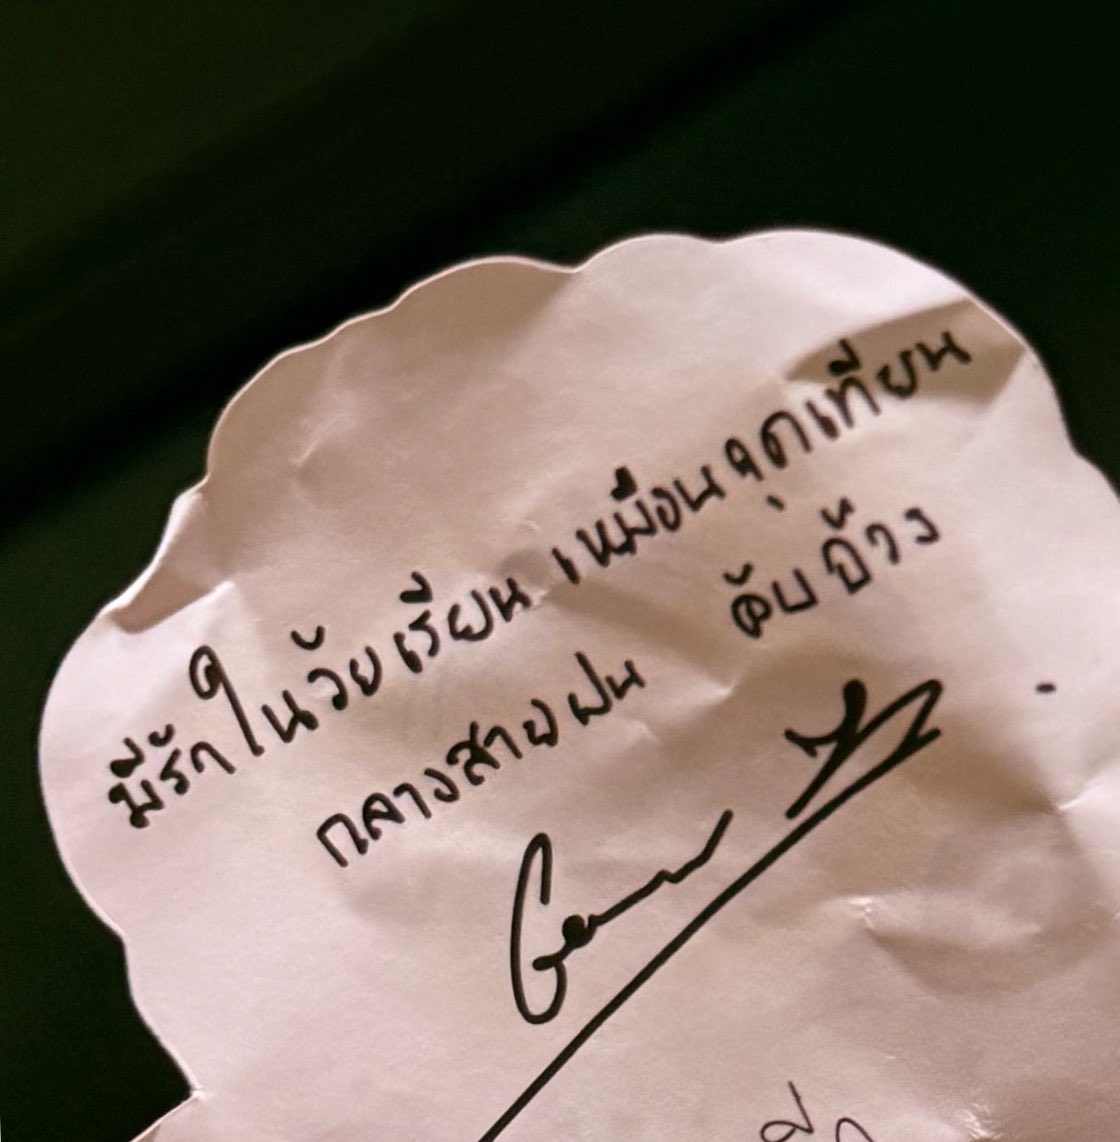 มีรักในวัยเรียน เหมือนจุดเทียน
กลางสายฝน ดับบ้าง